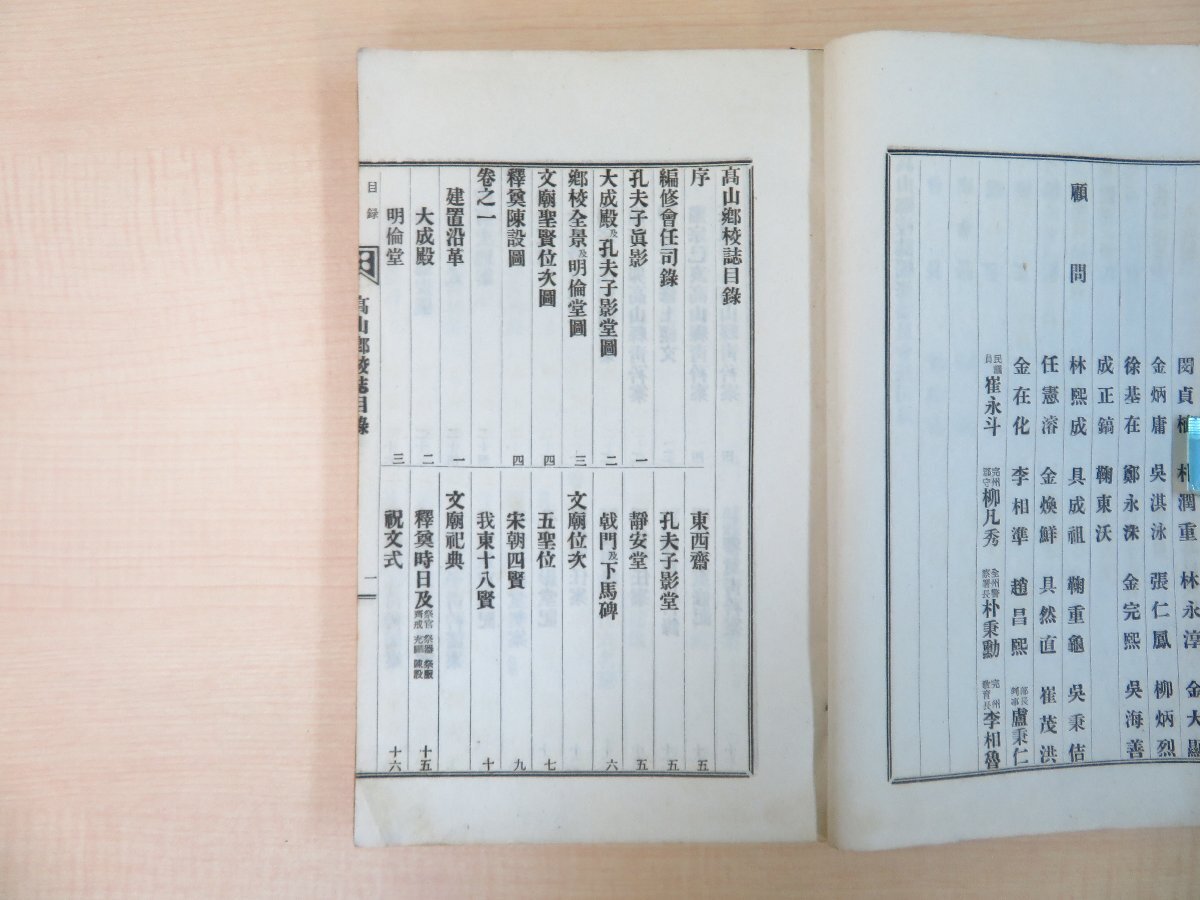 閔貞植 朴潤重 林永淳 金大顯
金炳庸 吳淇泳 張仁鳳 柳炳烈
徐基在 鄭永洙 金完熙 吳海善
成正鎬 鞠東沃
顧問 林熙成 具成祖 鞠重龜 吳秉佶
任憲溶 金煥鮮 具然直 崔茂洪
金在化 李相準 趙昌熙 部長判事盧秉仁
民議員崔永斗 完州郡守柳凡秀 全州警察署長朴秉勳 完州教育長李相魯
高山鄕校誌目錄
序 東西齋 五
編修會任司錄 孔夫子影堂 五
孔夫子眞影 一 靜安堂 五
大成殿及孔夫子影堂圖 二 戟門及下馬碑 六
鄕校全景及明倫堂圖 三 文廟位次
文廟聖賢位次圖 四 五聖位 七
釋奠陳設圖 四 宋朝四賢 九
卷之一 我東十八賢 十
建置沿革 一 文廟祀典
大成殿 二 釋奠時日及祭官 祭器 祭服 齊戒 充疈 陳設 十五
明倫堂 三 祝文式 十六
目錄 高山鄕校誌目錄 一